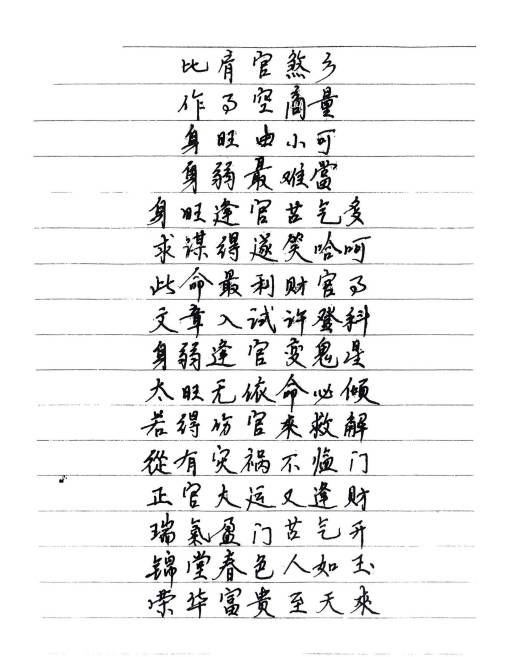 比肩官煞乃
作事空商量
身旺由小可
身弱最难當
身旺逢官苦气多
求谋得遂笑哈呵
此命最利财官事
文章入试许登科
身弱逢官变鬼星
太旺无依命必倾
若得伤官来救解
從有灾祸不临门
正官大运又逢财
瑞氣盈门苦气开
锦堂春色人如玉
荣华富贵至天來